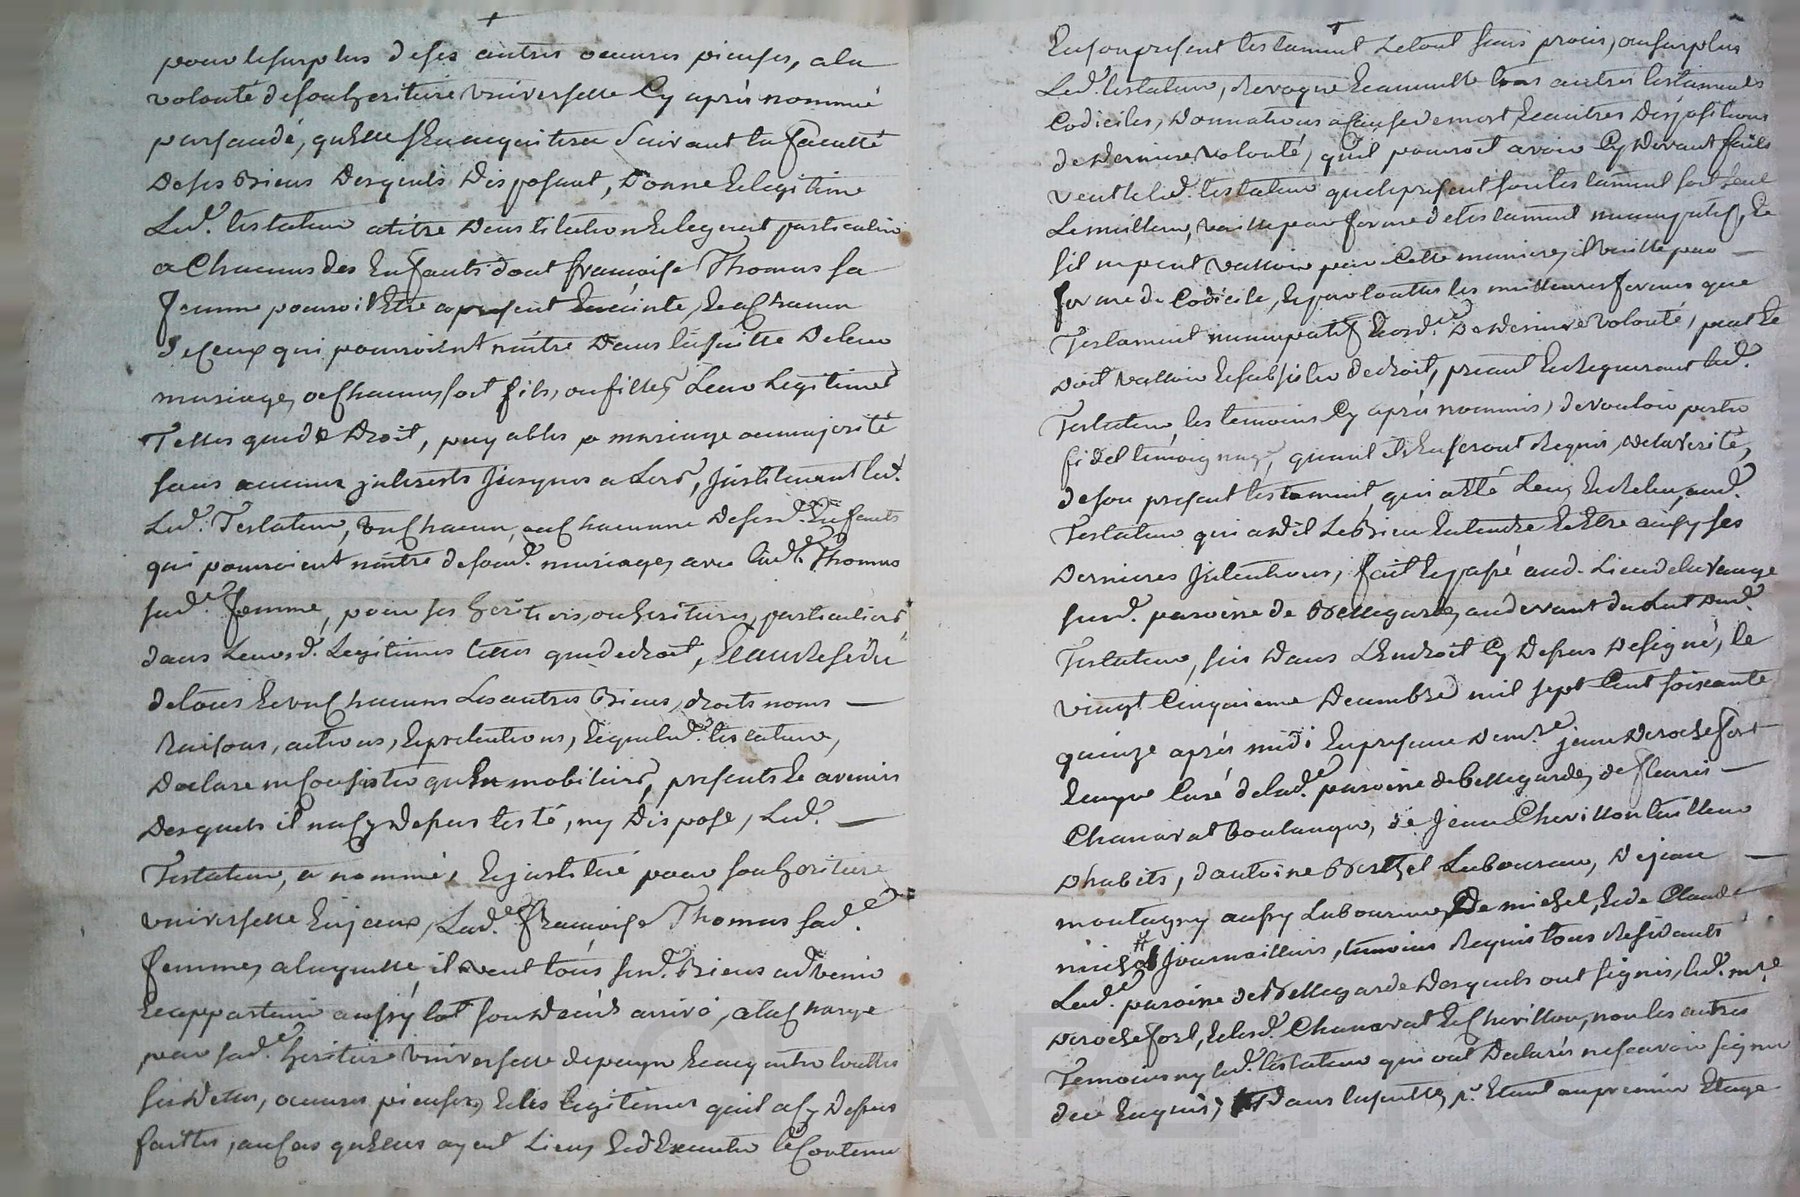 pour le surplus de ses autres oeuvres pieuses, a la
volonté de son heritiere universelle cy après nommée
persuadé, quelle s'en acquittera suivant la faculté
de ses biens desquels disposant, donne & legitime
Led.t testateur a titre d'institution & legat particulier
a chacuns des enfants dont françoise Thomas sa
femme pourroit etre a present enceinte, & a chacun
de ceux qui pourroient naître dans la suitte de leur
mariage, a chacuns soit fils, ou filles, leur legitimes
Telles que de droit, payables a mariage ou majorité
sans aucuns jnterests jusques a lors, jnstituant led.t
Led.t Testateur, un chacun, & chacunne de sesd.ts Enfants
qui pourroient naître de sond.t mariage, avec lad.te Thomas
sad.te femme, pour ses heritiers, ou heritieres, particuliers
dans leursd. Legitimes telles que de droit, & au residu
de tous & un chacuns les autres biens, droits noms —
Raisons, actions, & pretentions, & que led.t testateur,
Declare ne consister qu'en mobiliers, presents & avenirs
Desquels il n'a cy depus testé, ny disposé, Led.t —
Testateur, a nommé, & justitué pour son heritiere
universelle & jeaux, Lad.te françoise Thomas sad.te
femme, a laquelle il veut tous sesd.ts biens advenir
& appartenir aussy tot son deceds arrivé, a la charge
par sad.te heritiere universelle de payer & acquitter touttes
ses dettes, oeuvres pieuses, & les legitimes qu'il a cy depus
faittes, au cas quelles ayent Lieu, & d'executer le contenu
En son present testament le tout sans procès, au surplus
Led.t testateur, revoque & annulle tous autres testaments
Codiciles, donnations a cause de mort, & autres dispositions
de derniere volonté, qu'il pourroit avoir cy devant faits
veut led.t testateur que le present son testament soit seul
Le meilleur, vaille par forme de testament nuncupatif, &
s'il ne peut valloir par cette maniere, il vaille par —
forme de codicile, & par touttes les meilleures formes que
Testament nuncupatif & ord.ce de derniere volonté, peut &
doit valloir & subsister de droit, priant & requerant led.t
Testateur les temoins cy après nommés, de vouloir porter
fidel témoignage, quant ils en seront requis, de la verité,
de son present testament qui a été leu, & releu, aud.t
Testateur qui a dit le bien entendre & etre ainsy ses
Dernieres jntentions, fait & passé aud. lieu de la varage
susd.t paroisse de Bellegarde, au devant du lict dud.t
Testateur, sis dans l'endroit cy depus designé, le
vingt cinquieme decembre mil sept cent soixante
quinze après midi En presence de m.re jean Derochefort
Ecuyer Curé de lad.te paroisse de bellegarde, de fleuris —
Chanavat boulanger, de jean Chevillon tailleur
d'habits, d'antoine Berthet Laboureur, de jean —
montagny aussy Laboureur, De michel, & de Claude
michel journalliers, temoins requis tous residants
Lad.te paroisse de Bellegarde desquels ont signés, led.t m.re
derochefort, & lesd.ts Chanavat & Chevillon, non les autres
Temoins ny led.t testateur qui ont declarés ne scavoir signer
de ce Enquis, dans la suitte, p.r Etant au premier Etage